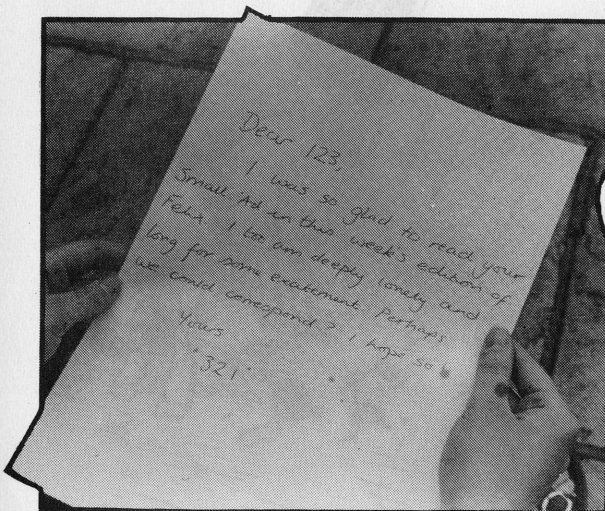 Dear 123,
I was so glad to read your
Small Ad in this week's edition of
Felix. I too am deeply lonely and
long for some excitement. Perhaps
we could correspond? I hope so
Yours
"321"